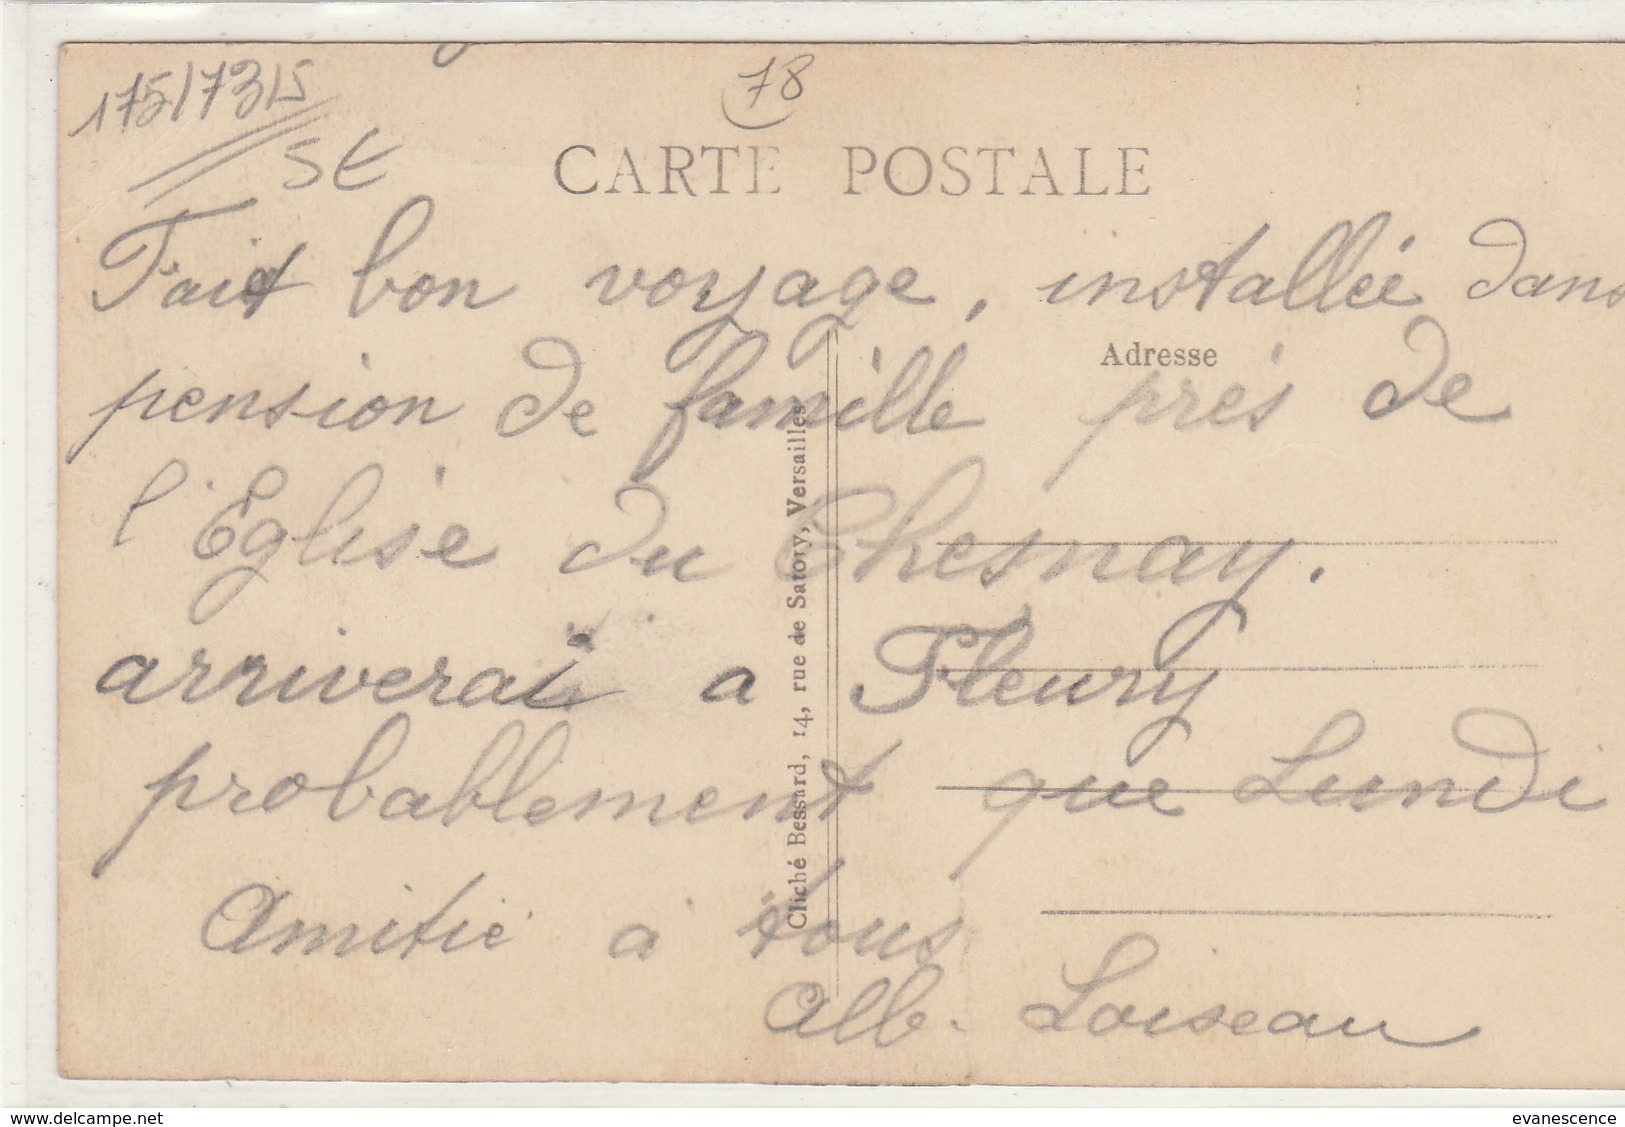 175/7315
78
5€
CARTE POSTALE
Fait bon voyage, installée dans
Adresse
pension de famille près de
l'Eglise du Chesnay.
arriverai a Fleury
probablement que Lundi
Amitié à tous
Alb. Loiseau
Cliché Bessard, 14, rue de Satory, Versailles
www.delcampe.net
evanescence